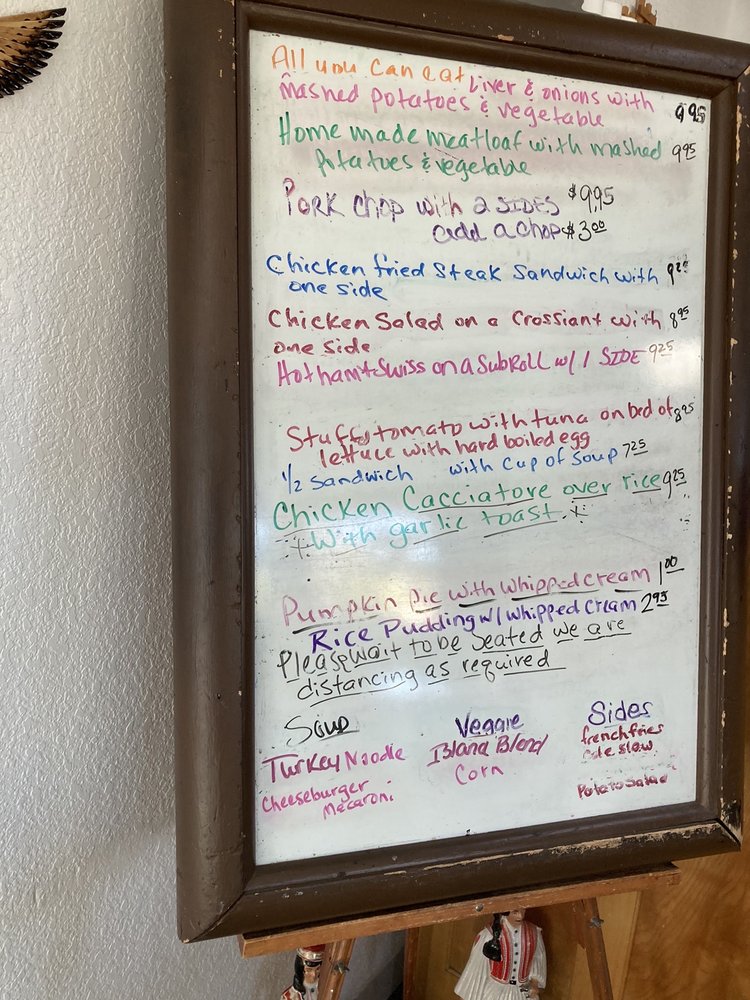 All you can eat Liver & onions with
mashed potatoes & vegetable 9.95
Home made meatloaf with mashed 9.95
potatoes & vegetable
Pork chop with 2 SIDES $9.95
add a chop $3.00
Chicken fried Steak Sandwich with 9.25
one side
Chicken Salad on a Crossiant with 8.95
one side
Hot ham + Swiss on a Sub Roll w/ 1 SIDE 9.25
Stuff tomato with tuna on bed of 8.95
lettuce with hard boiled egg
1/2 Sandwich with Cup of Soup 7.25
Chicken Cacciatore over rice 9.25
With garlic toast.
Pumpkin Pie with whipped cream 1.00
Rice Pudding w/ whipped cream 2.95
Please wait to be Seated we are
distancing as required
Soup
Turkey Noodle
Cheeseburger
Macaroni
Veggie
Island Blend
Corn
Sides
french fries
Cole slaw
Potato Salad